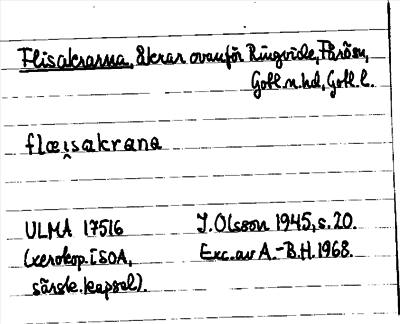 Flisakrarna, Åkrar ovanför Ringvide, Fårösn,
Gotl. n. hd, Gotl. l.
flæi̯sakrana
ULMA 17516 J. Olsson 1945, s. 20.
(xerokop. i SOA, Exc. av A.-B.H. 1968.
särsk. kapsel).